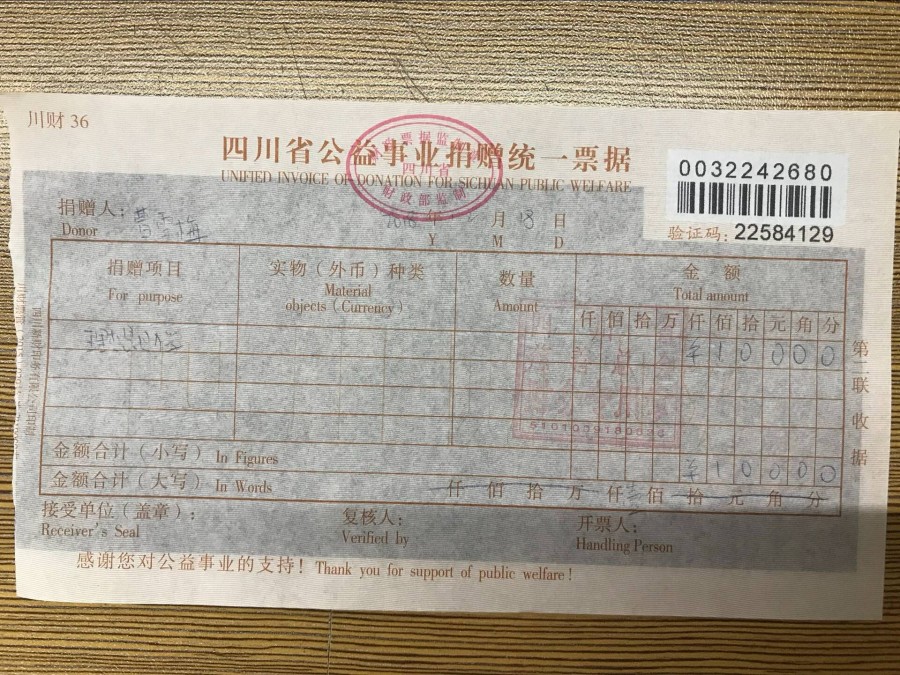 川财 36
四川省公益事业捐赠统一票据
UNIFIED INVOICE OF DONATION FOR SICHUAN PUBLIC WELFARE
四川省
财政部监制
0032242680
验证码: 22584129
捐赠人:
Donor
2018 年 月 18 日
Y M D
捐赠项目 实物（外币）种类 数量 金 额
For purpose Material objects (Currency) Amount Total amount
仟 佰 拾 万 仟 佰 拾 元 角 分
¥ 1 0 0 0 0
5101009180026
金额合计（小写） In Figures ¥ 1 0 0 0 0
金额合计（大写） In Words 仟 佰 拾 万 仟 佰 拾 元 角 分
接受单位（盖章）: 复核人: 开票人:
Receiver's Seal Verified by Handling Person
感谢您对公益事业的支持! Thank you for support of public welfare!
第二联 收据